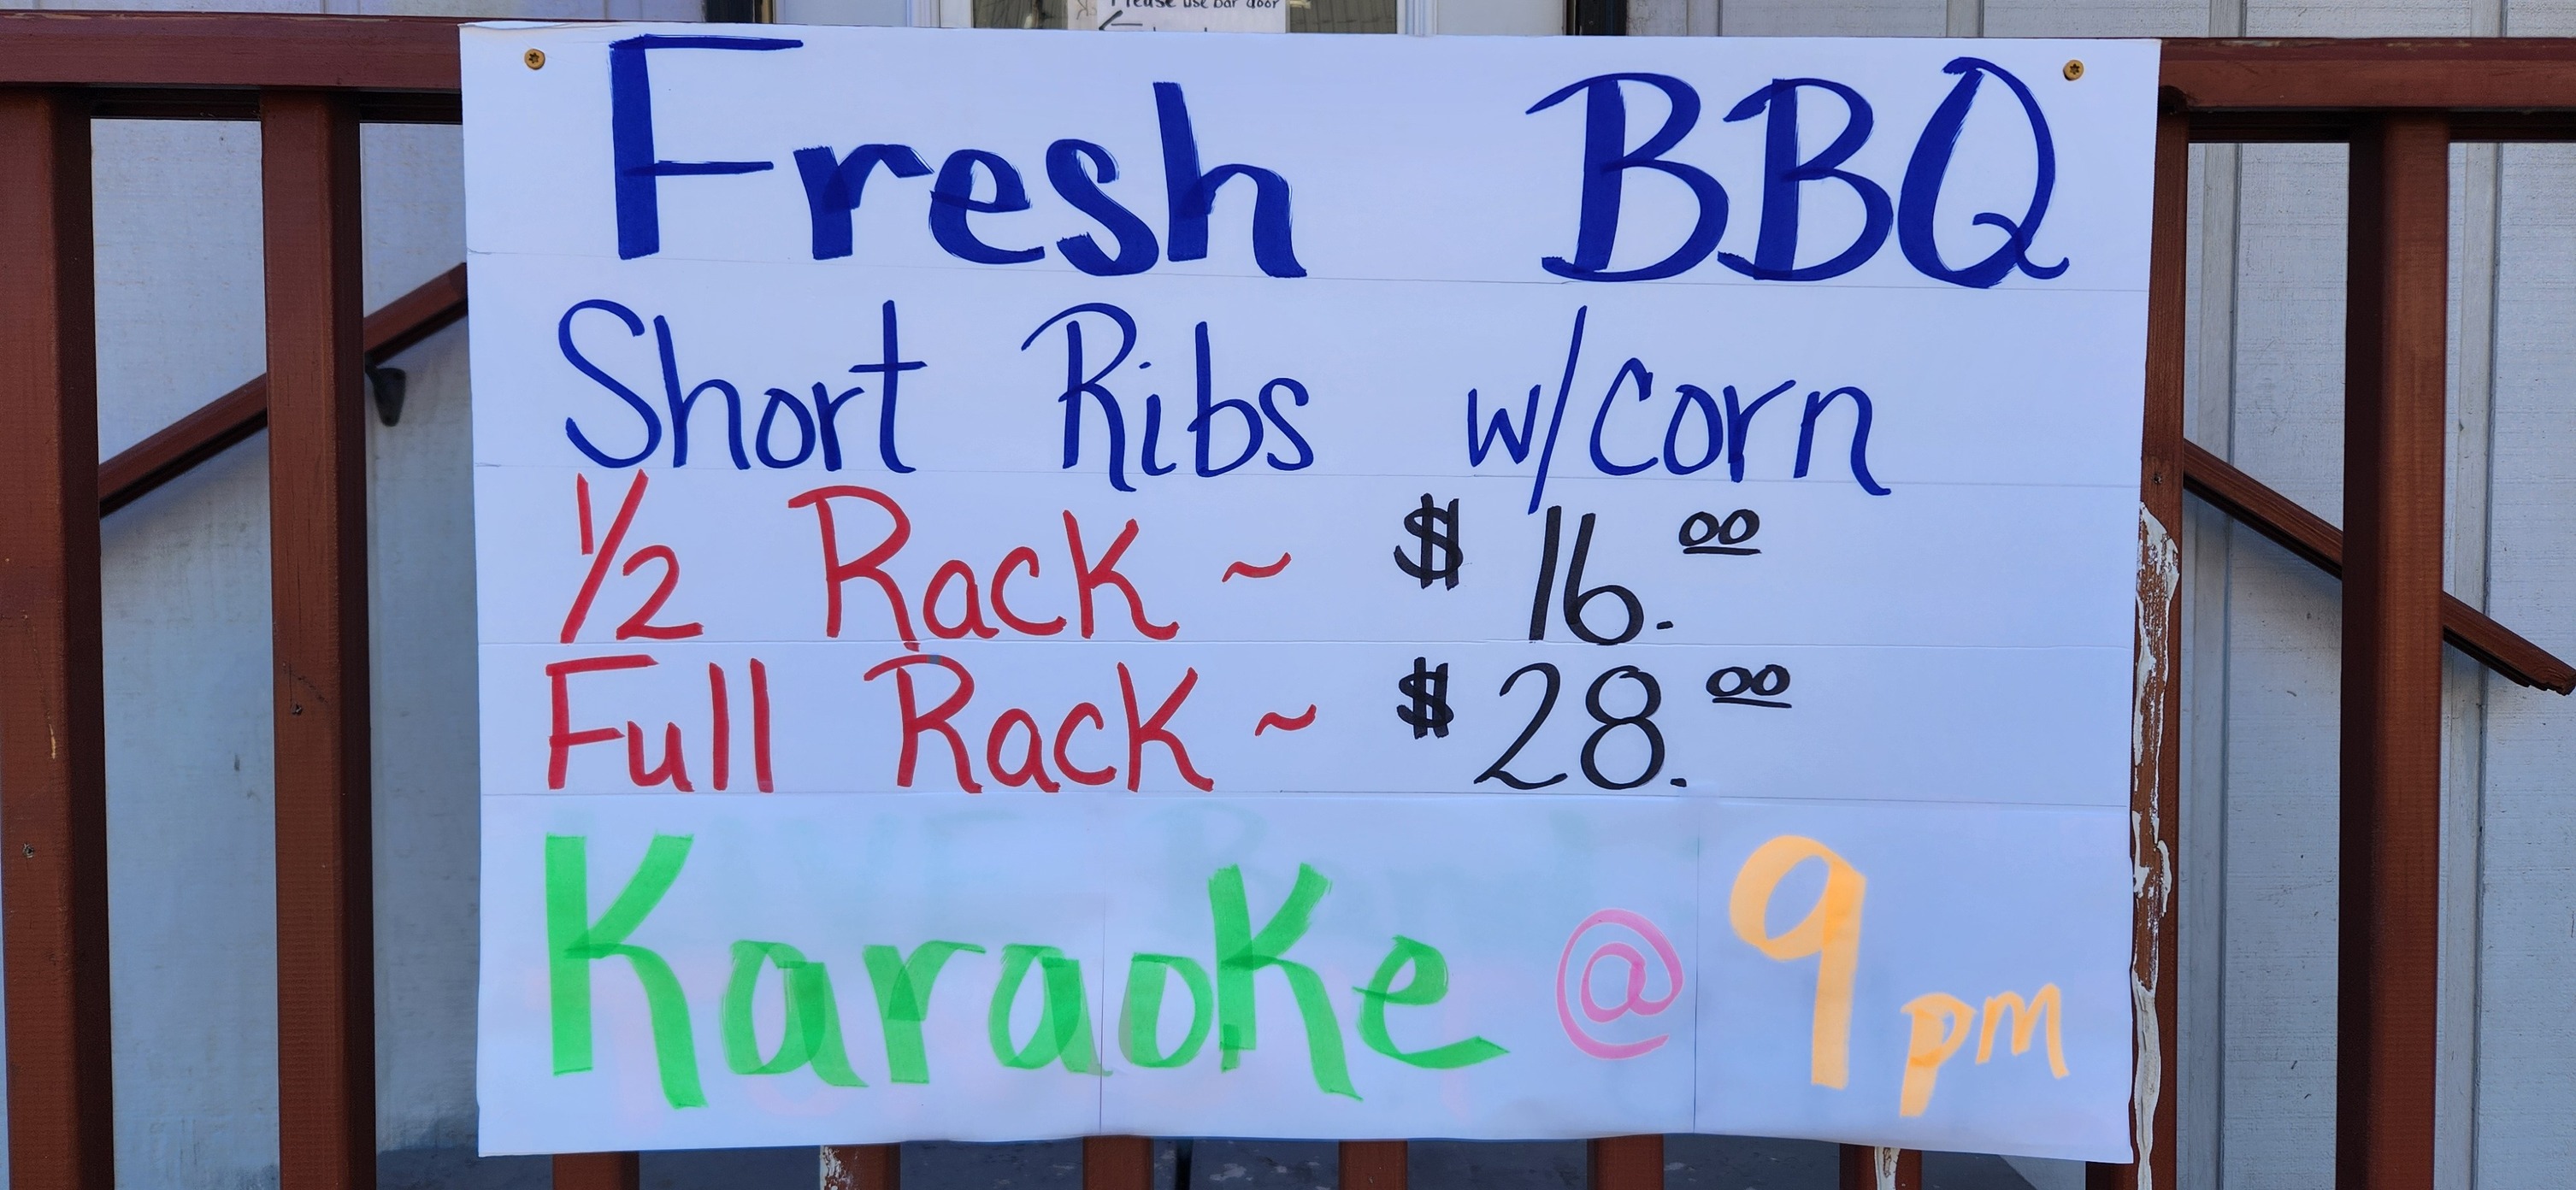 Please use bar door
Fresh BBQ
Short Ribs w/corn
1/2 Rack ~ $16.00
Full Rack ~ $28.00
Karaoke @ 9pm